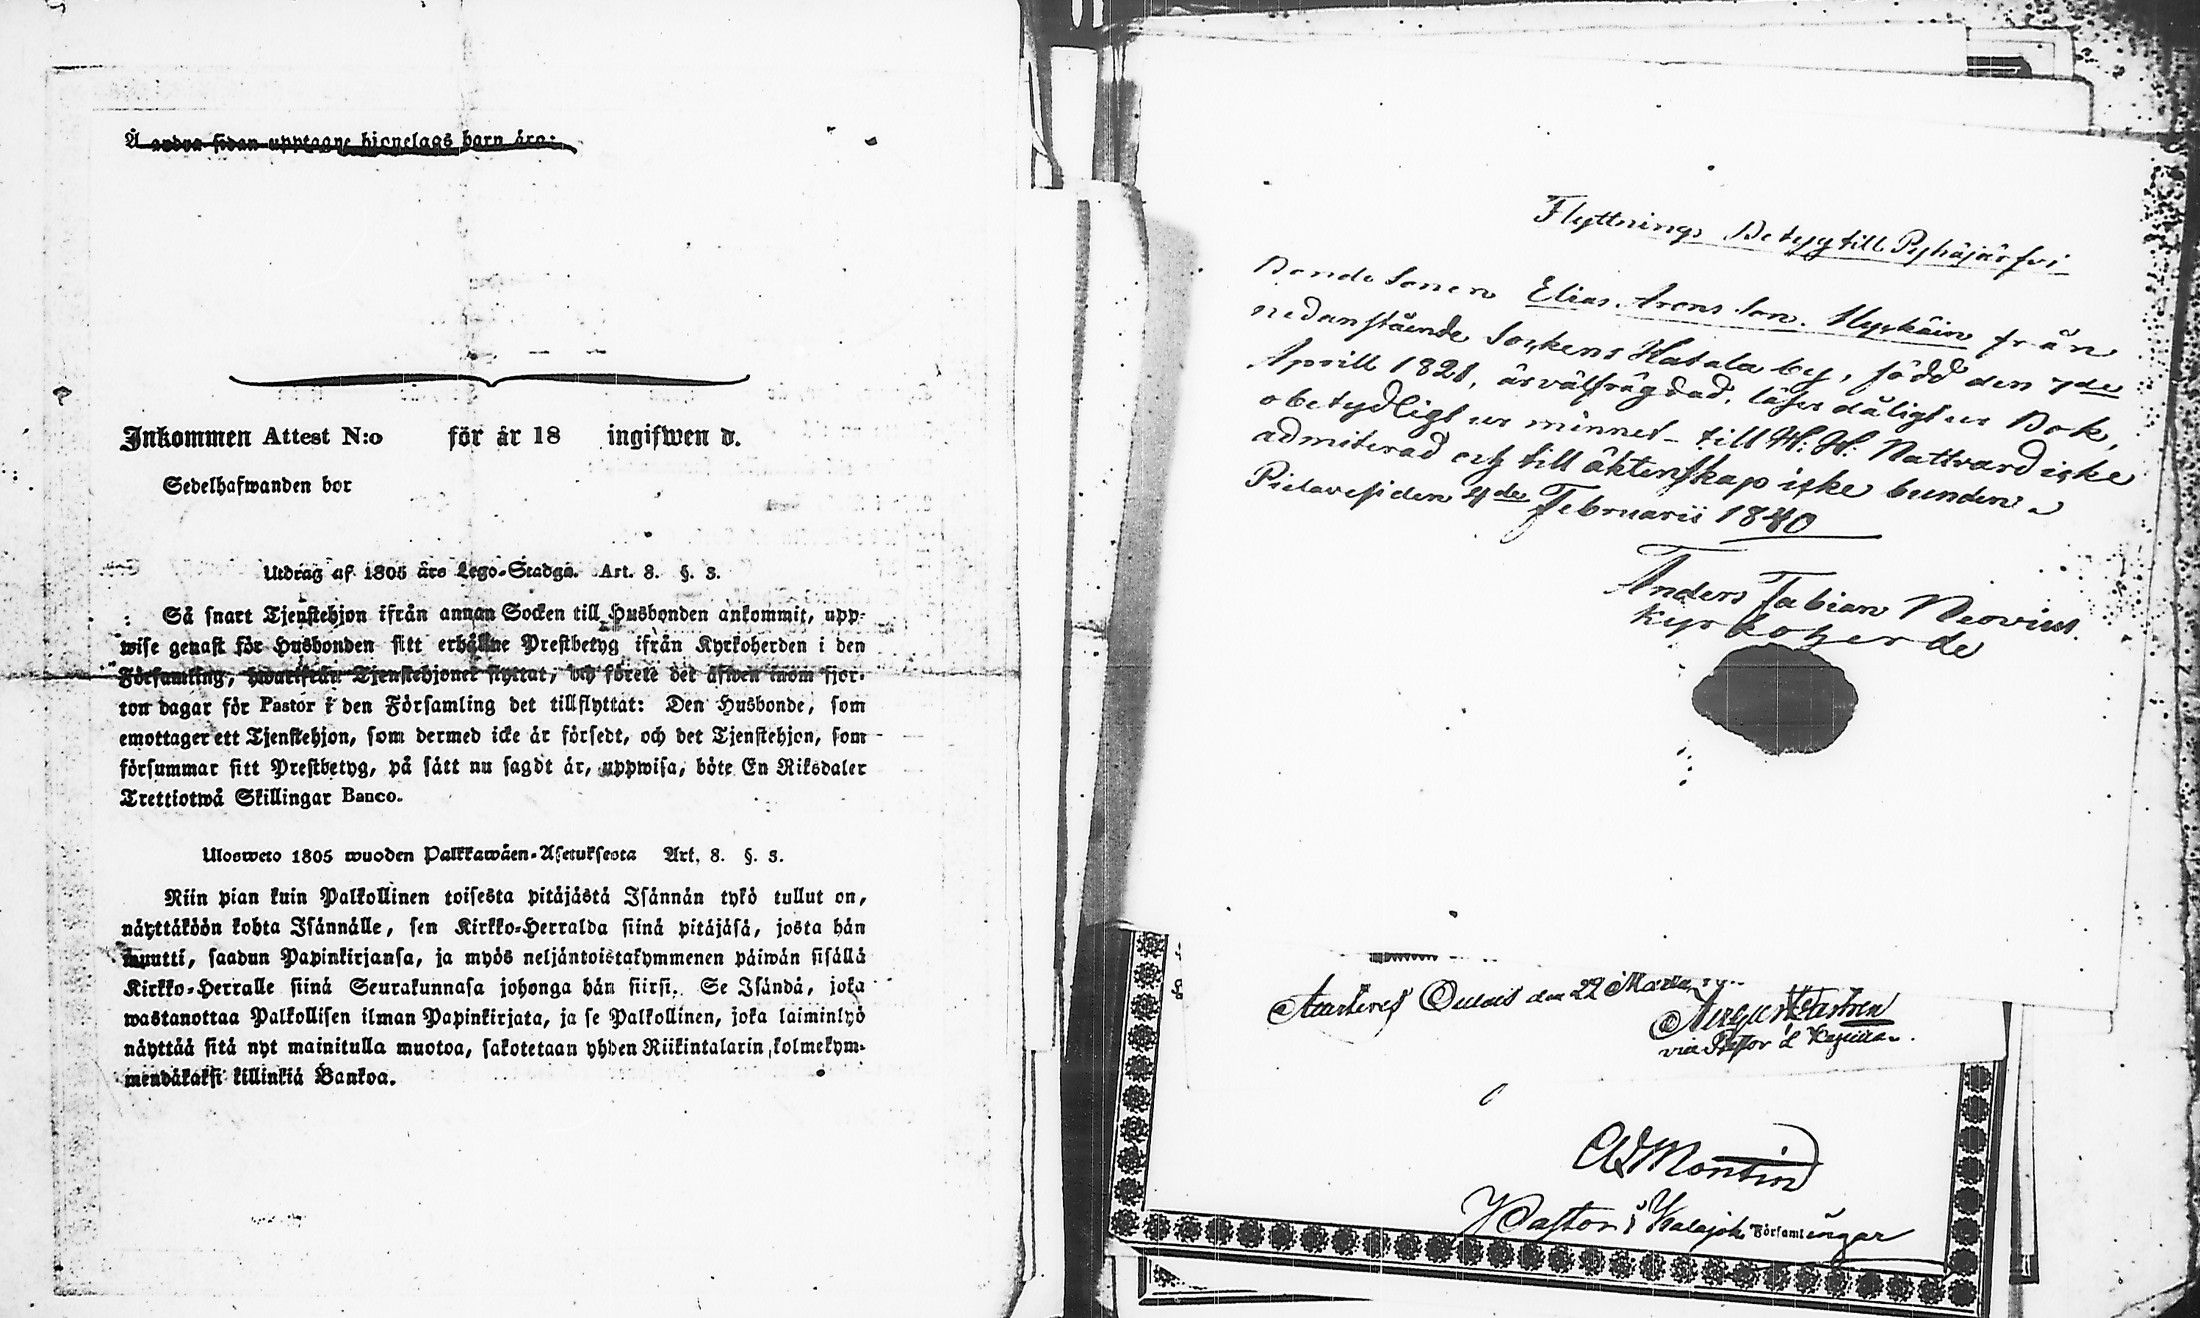 Å andra sidan upptagne hjonelags barn äro:
Inkommen Attest N:o för år 18 ingifwen d.
Sedelhafwanden bor
Utdrag af 1805 års Lego-Stadga. Art. 8. §. 3.
Så snart Tjenstehjon ifrån annan Socken till Husbonden ankommit, upp-
wise genast för Husbonden sitt erhållne Prestbetyg ifrån Kyrkoherden i den
Församling, hwarifrån Tjenstehjonet flyttat, och förete det äfwen inom fjor-
ton dagar för Pastor i den Församling det tillflyttat: Den Husbonde, som
emottager ett Tjenstehjon, som dermed icke är försedt, och det Tjenstehjon, som
försummar sitt Prestbetyg, på sätt nu sagdt är, uppwisa, böte En Riksdaler
Trettiotwå Skillingar Banco.
Ulosweto 1805 wuoden Palkkawäen-Asetuksesta Art. 8. §. 3.
Niin pian kuin Palkollinen toisesta pitäjästä Isännän tykö tullut on,
näyttäköön kohta Isännälle, sen Kirkko-Herralda siinä pitäjäsä, josta hän
muutti, saadun Papinkirjansa, ja myös neljäntoistakymmenen päiwän sisällä
Kirkko-Herralle siinä Seurakunnasa johonga hän siirsi. Se Isändä, joka
wastanottaa Palkollisen ilman Papinkirjata, ja se Palkollinen, joka laiminlyö
näyttää sitä nyt mainitulla muotoa, sakotetaan yhden Riikintalarin kolmekym-
mendäkaksi killinkiä Bankoa.
Flyttnings Betyg till Pyhäjärfvi
Bonde Sonen Elias Arons Son. Hyvkäin från
nedanstående Sockens Hatala by, född den 7de
Aprill 1821, är välfrägdad, läser dåligt ur Bok,
obetydligt ur minnet – till H. H. Nattvard icke
admiterad och till äktenskap icke bunden
Pielavesi den 4de Februarii 1840
Anders Fabian Neovius.
Kyrkoherde
Oulais den 22 Martii
August
vice Pastor
Montin
Pastor i Kalajoki Församlingar